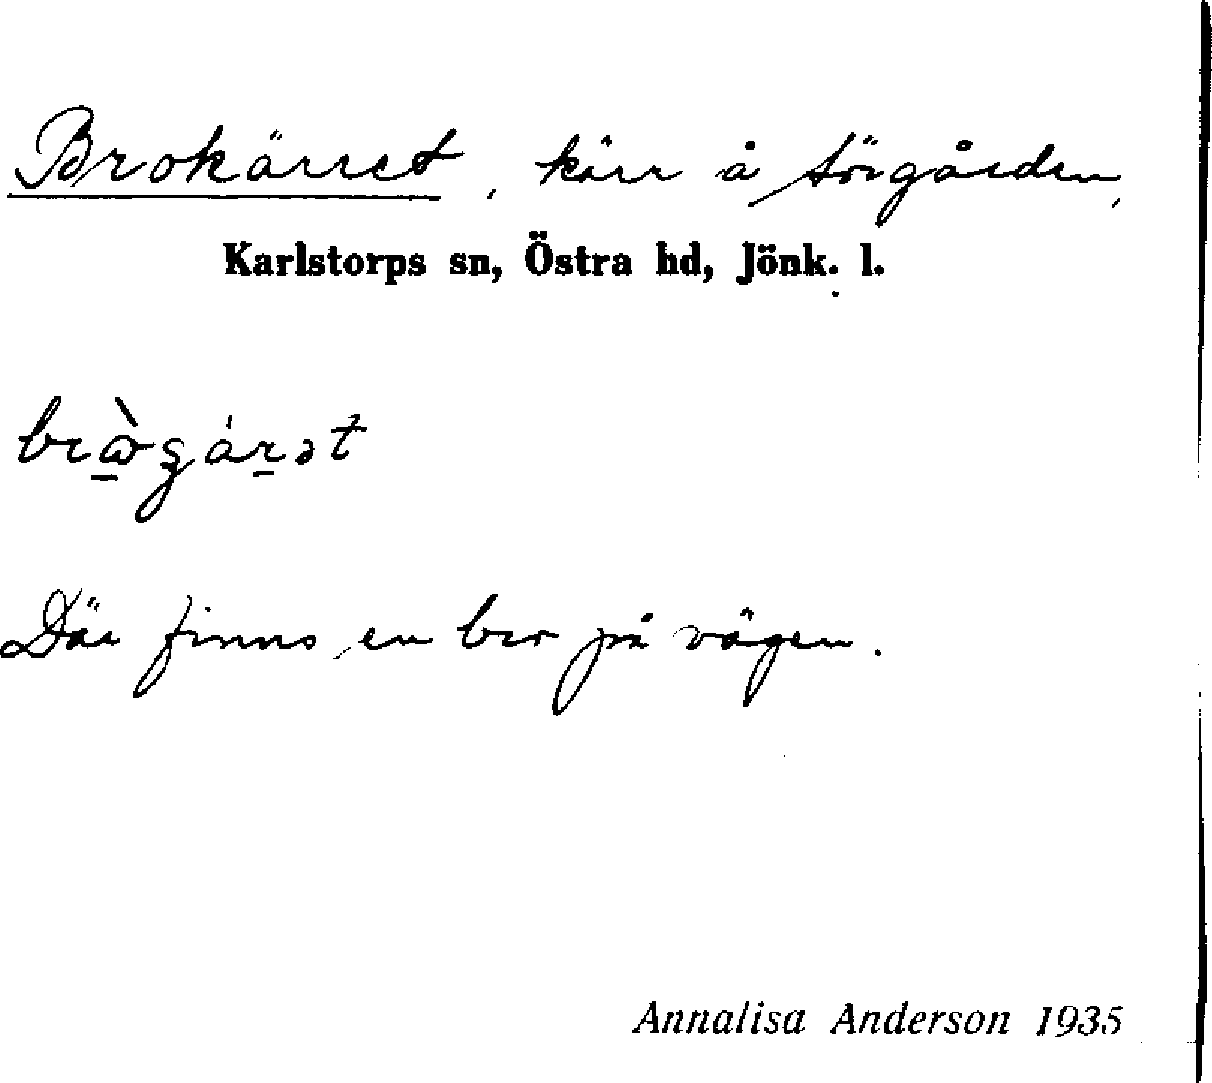 Brokärret, kärr å Sörgården,
Karlstorps sn, Östra hd, Jönk. l.
Där finns en bro på vägen.
Annalisa Anderson 1935